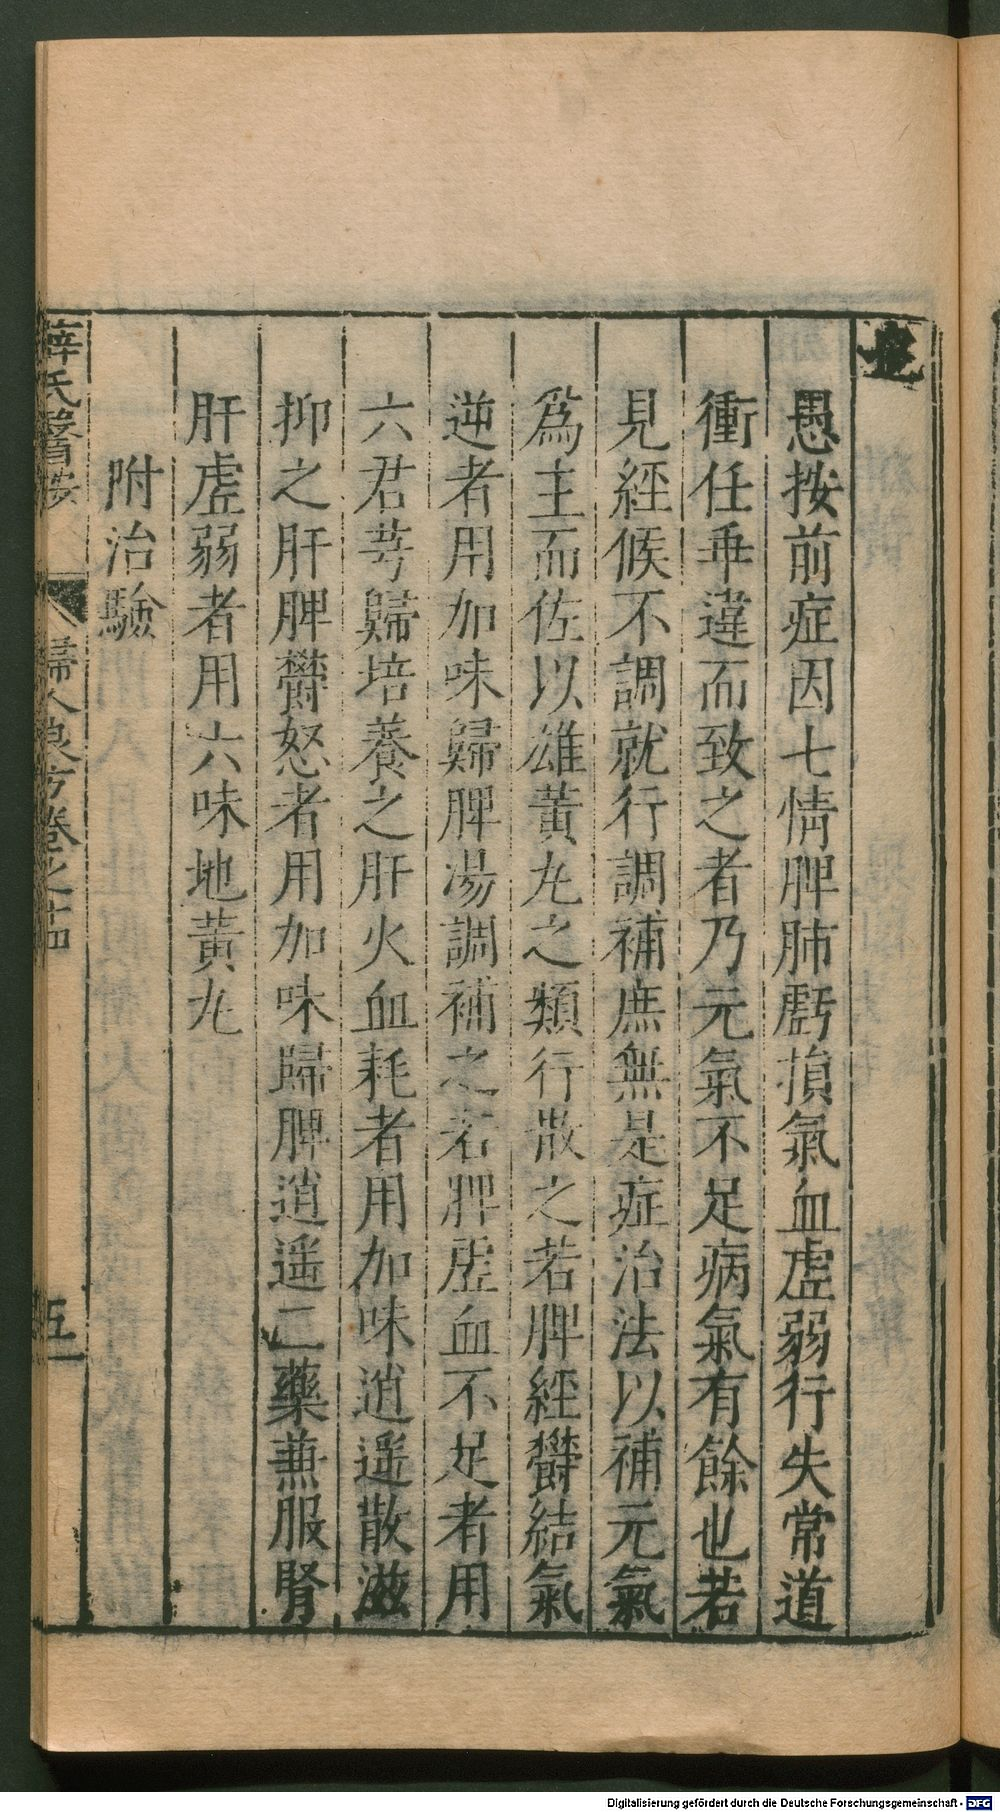 愚按前症因七情脾肺虧損氣血虛弱行失常道
衝任乖違而致之者乃元氣不足病氣有餘也若
見經候不調就行調補庶無是症治法以補元氣
爲主而佐以雄黃丸之類行散之若脾經欝結氣
逆者用加味歸脾湯調補之若脾虛血不足者用
六君芎歸培養之肝火血耗者用加味逍遥散滋
抑之肝脾欝怒者用加味歸脾逍遥二藥兼服腎
肝虛弱者用六味地黃丸
附治驗
薛氏醫按
婦人良方卷之十四
五
Digitalisierung gefördert durch die Deutsche Forschungsgemeinschaft - DFG